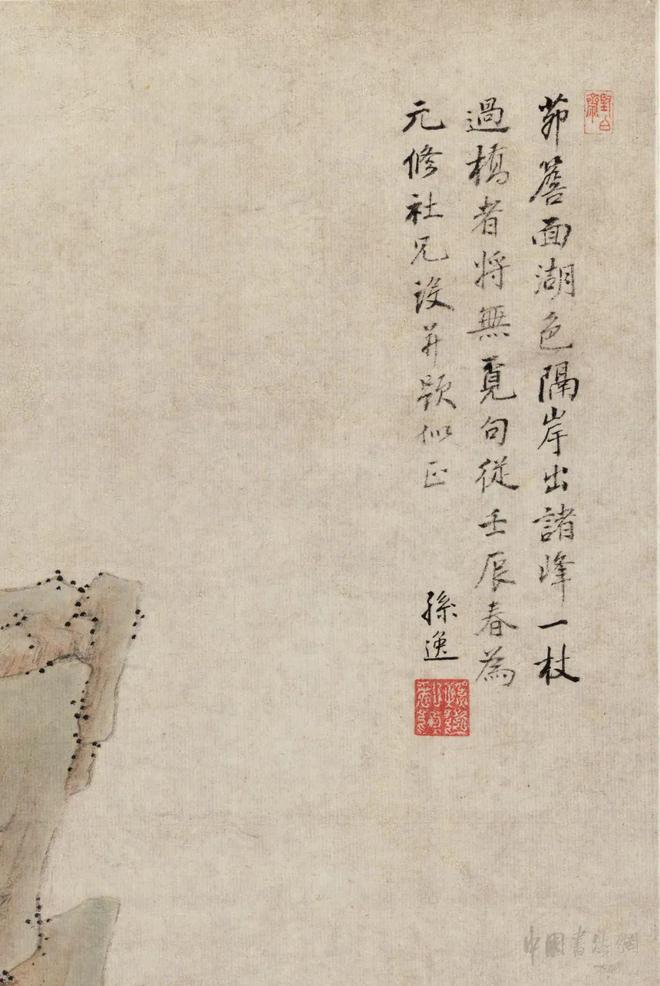 茆簷面湖色隔岸出諸峰一杖
過橋者將無覓句從壬辰春為
元修社兄設并題似正
孫逸
中國書法網